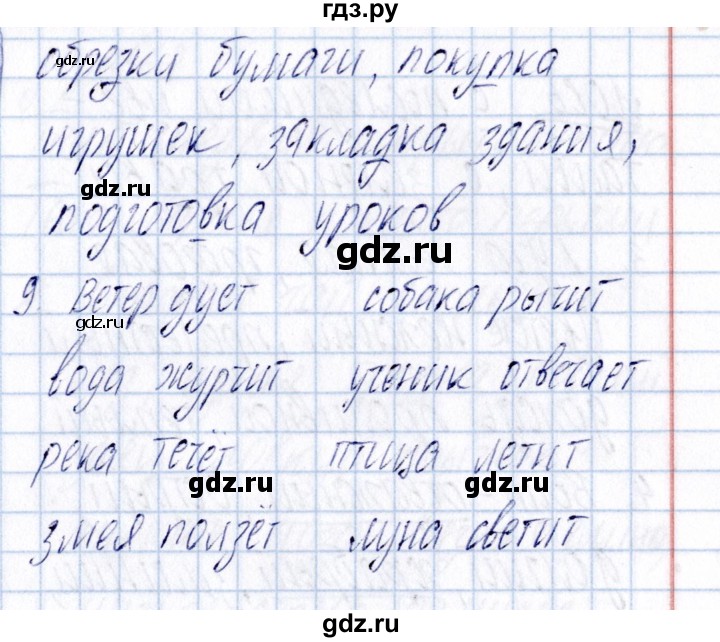 гдз.ру
обрезки бумаги, покупка
gdz.ru
игрушек, закладка здания,
gdz.ru
подготовка уроков
gdz.ru
9. Ветер дует собака рычит
gdz.ru
вода журчит ученик отвечает
река течёт птица летит
gdz.ru gdz.ru
змея ползёт луна светит
gdz.ru